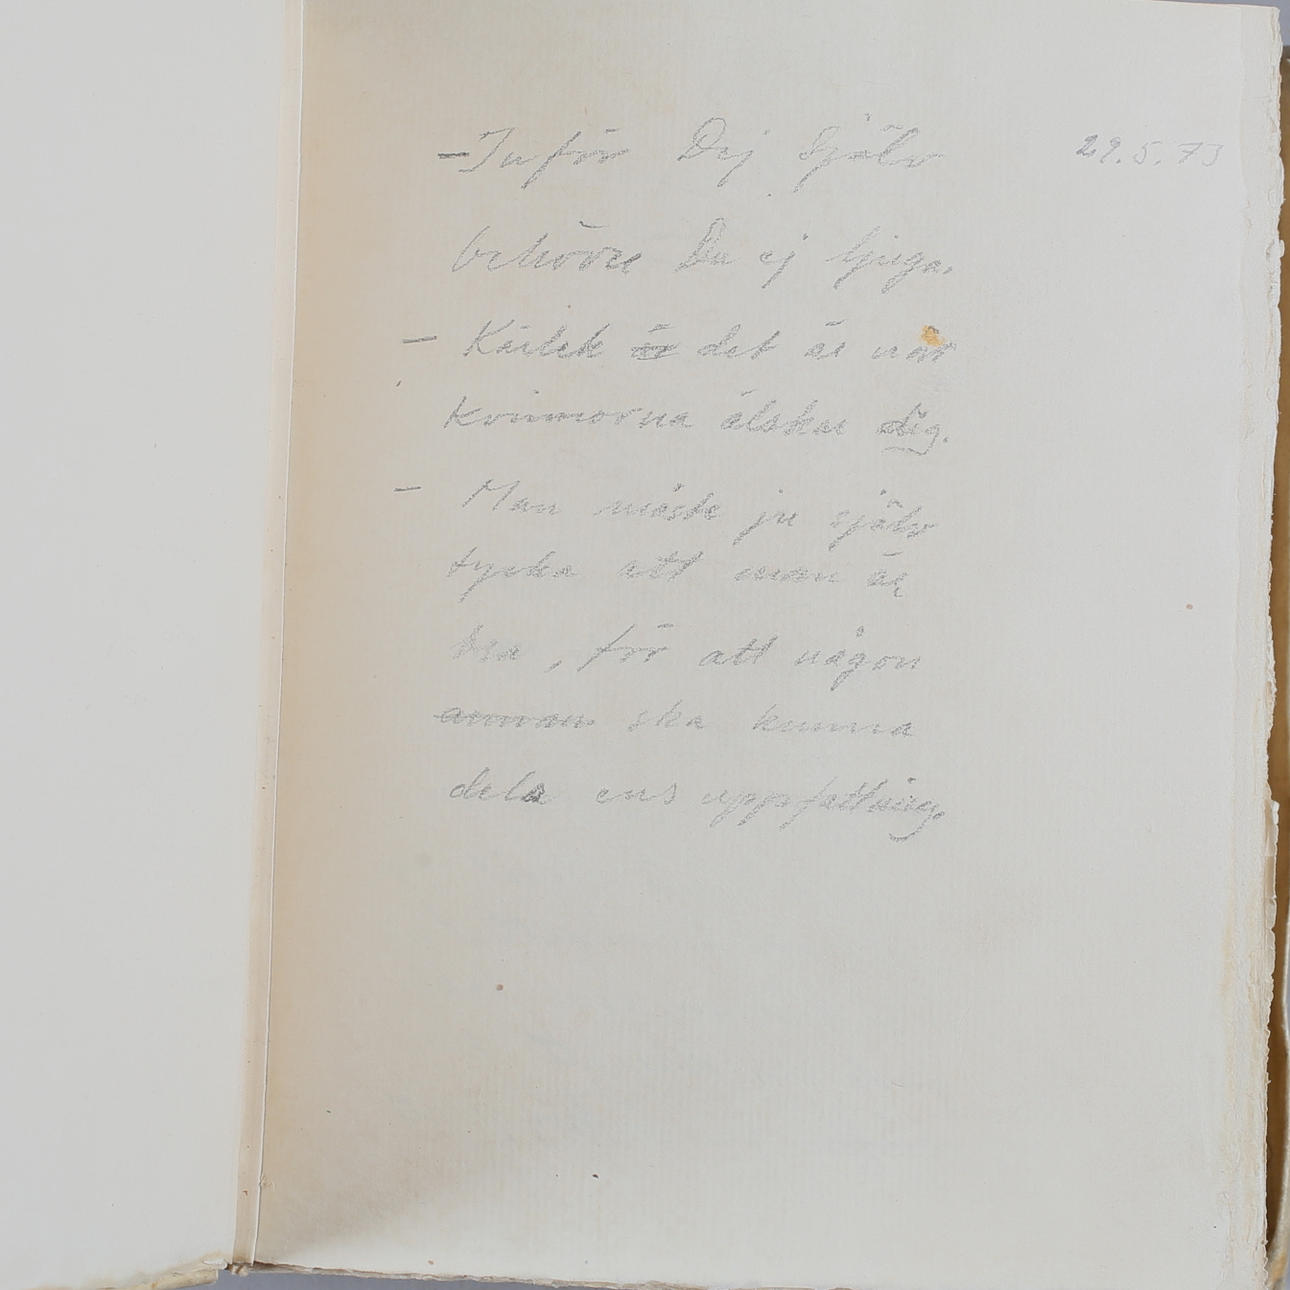 - Inför Dej Själv 29.5.73
behöver Du ej ljuga.
- Kärlek är det är när
kvinnorna älskar dig.
- Man måste ju själv
tycka att man är
bra, för att någon
annan ska kunna
dela ens uppfattning.